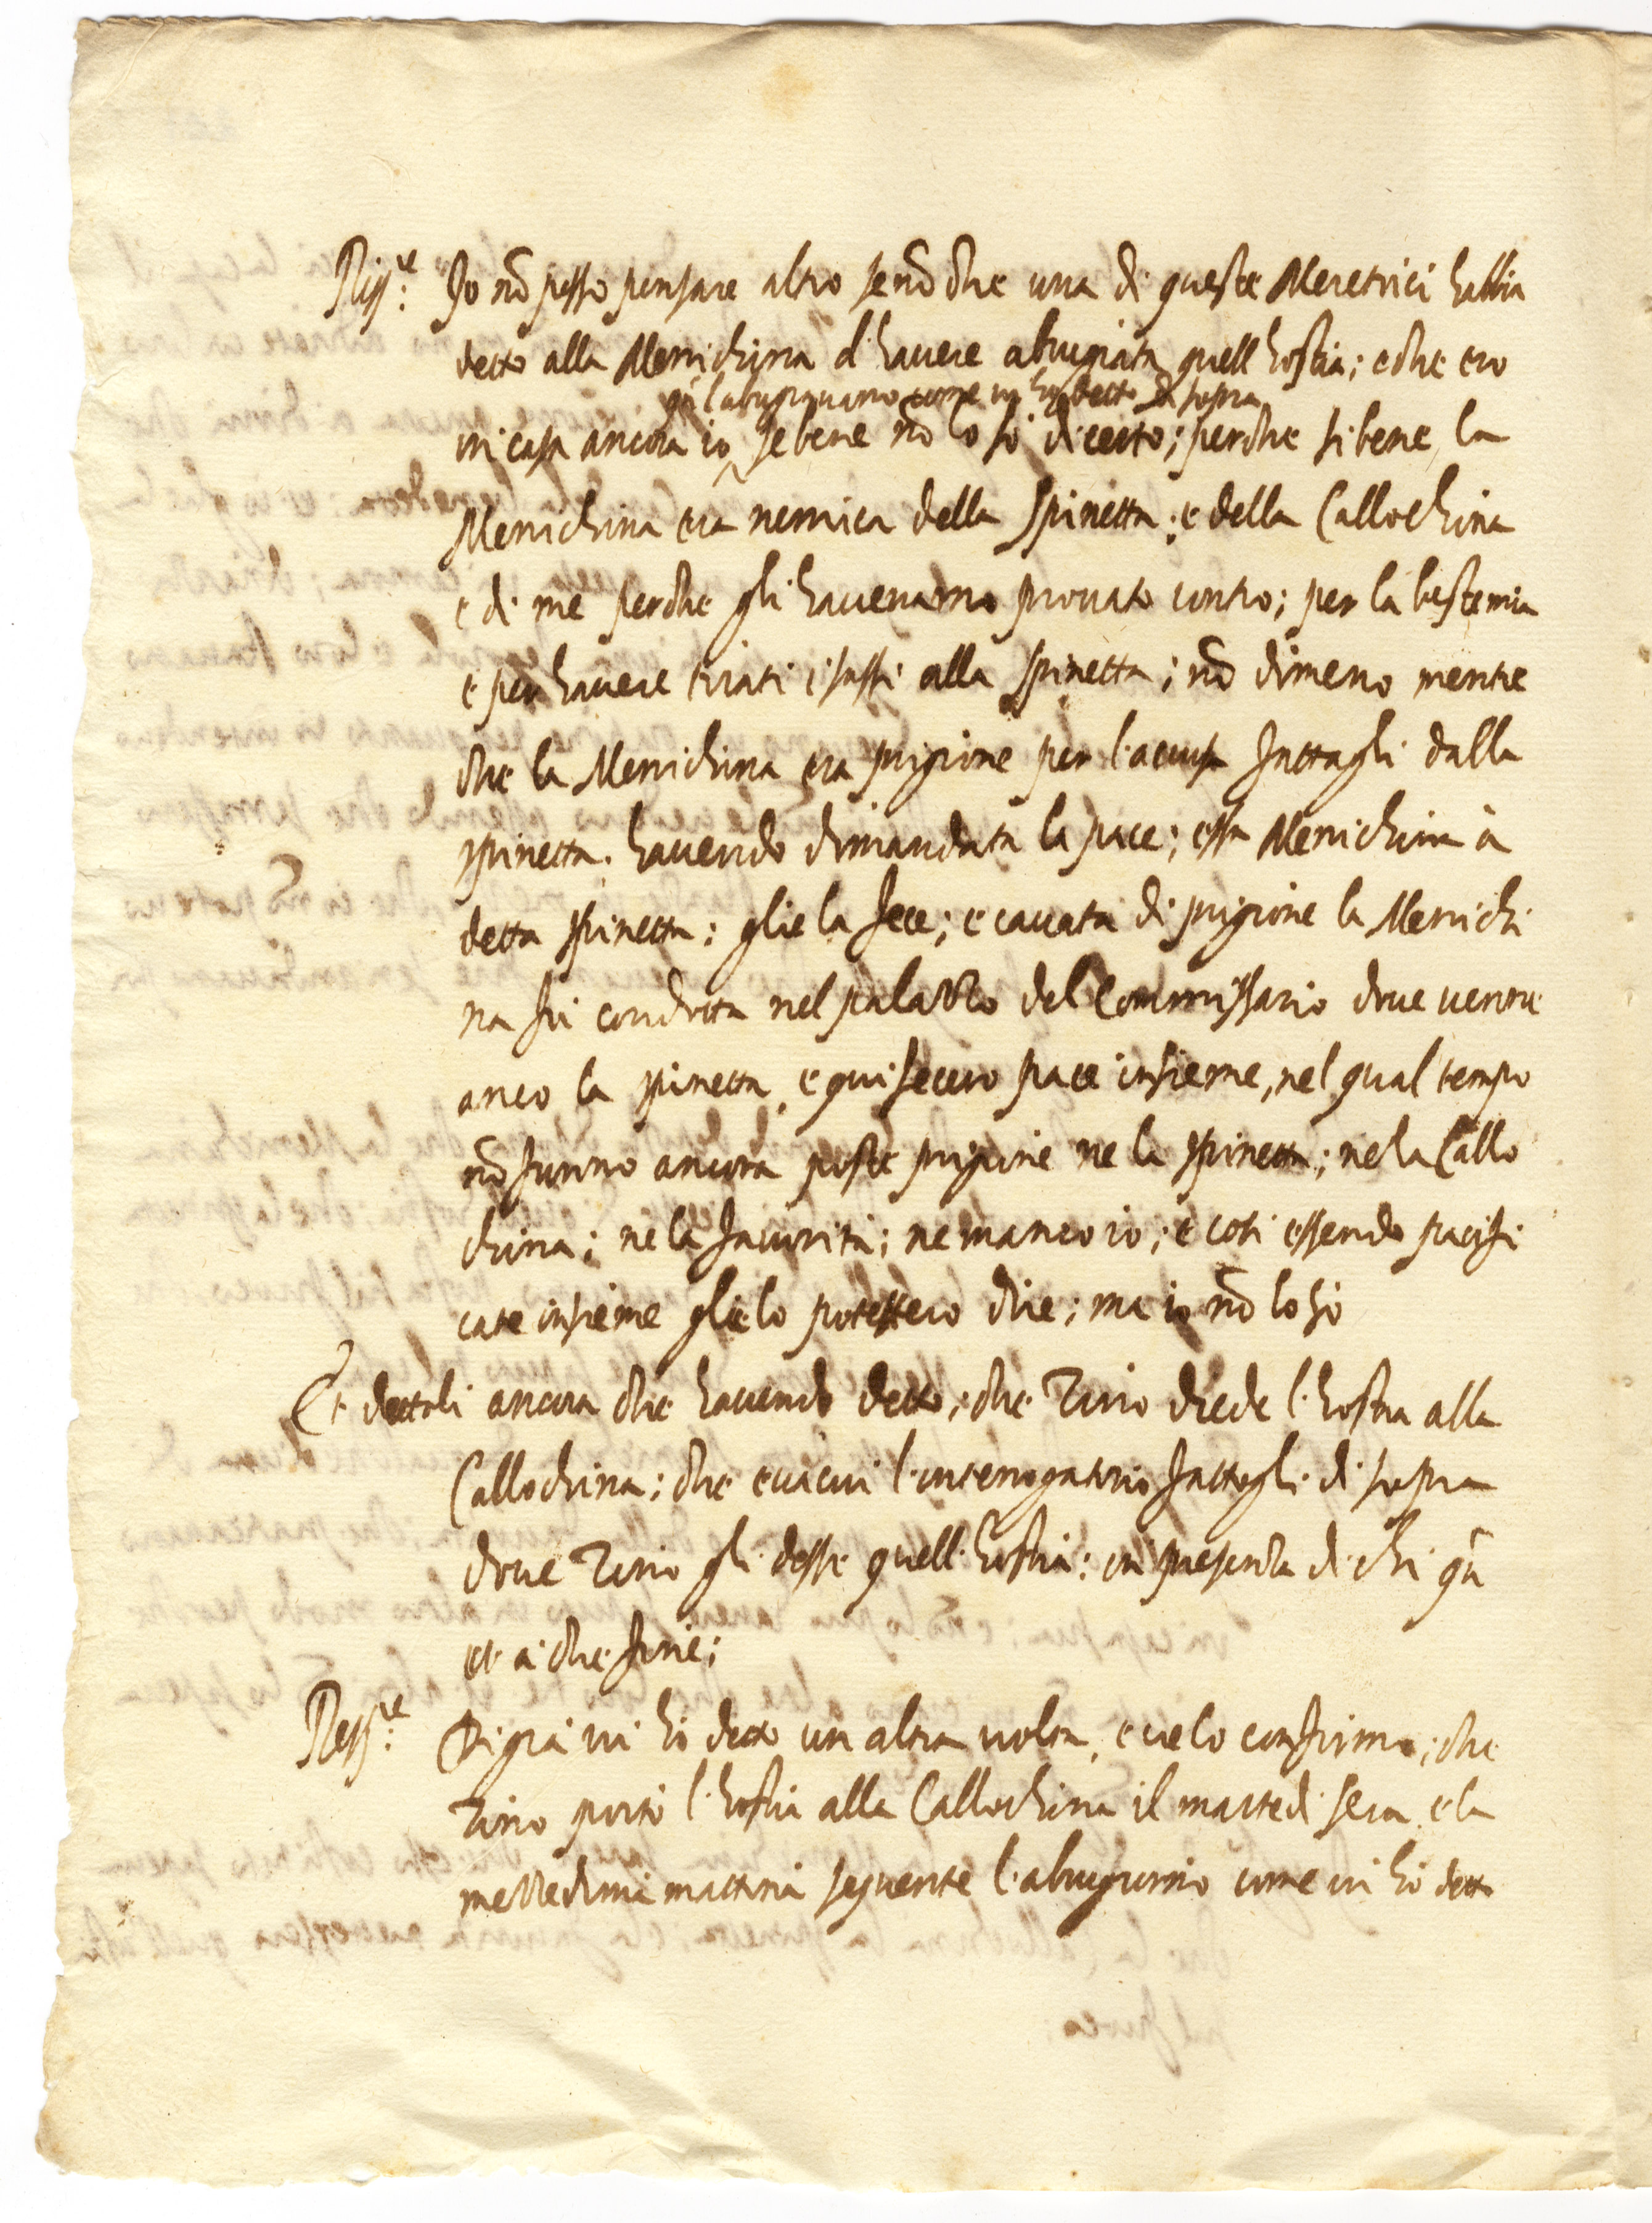 Risp.e Io nõ posso pensare altro se nõ che una di queste Meretrici habbia
detto alla Menichina d'havere abrugiata quell'hostia; e che ero
qñ l'abrugiavano come vi ho detto di sopra
in casa ancora io, se bene nõ lo sò di certo; perche si bene, la
Menichina era nemica della Spinetta; e della Callochina
e di me perche gli havevamo provato contro; per la bestemia
e per havere tirati i sassi alla Spinetta; nõ dimeno mentre
che la Menichina era prigione per l'accusa fattagli dalla
spinetta. havendo dimandata la pace; essa Menichina à
detta spinetta; glie la fece; e cavata di prigione la Menichi
na fù condotta nel palazzo del Commissario dove venne
anco la spinetta, e qui fecero pace insieme, nel qual tempo
nõ furno ancora poste prigione ne la spinetta; ne la Callo
china; ne la favorita; ne manco io; e cosi essendo pacifi
cate insieme glie lo potettero dire; ma io nõ lo sò
Et dettoli ancora che havendo detto; che Tirio diede l'hostia alla
Callochina; che evacui l'interrogatorio fattogli di sopra
dove Tirio gli desse quell'hostia; in presenza di chi qñ
et à che fine;
Resp.e Di già vi hò detto un altra volta, e ve lo confirmo; che
Tirio portò l'hostia alla Callochina il martedi sera, e la
mezzedima mattina sequente l'abrugiorno come vi hò detto